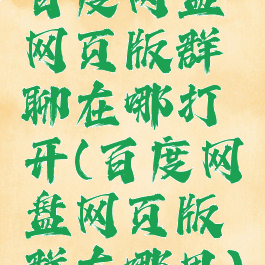 百度网盘
网页版群
聊在哪打
开(百度网
盘网页版
群在哪里)